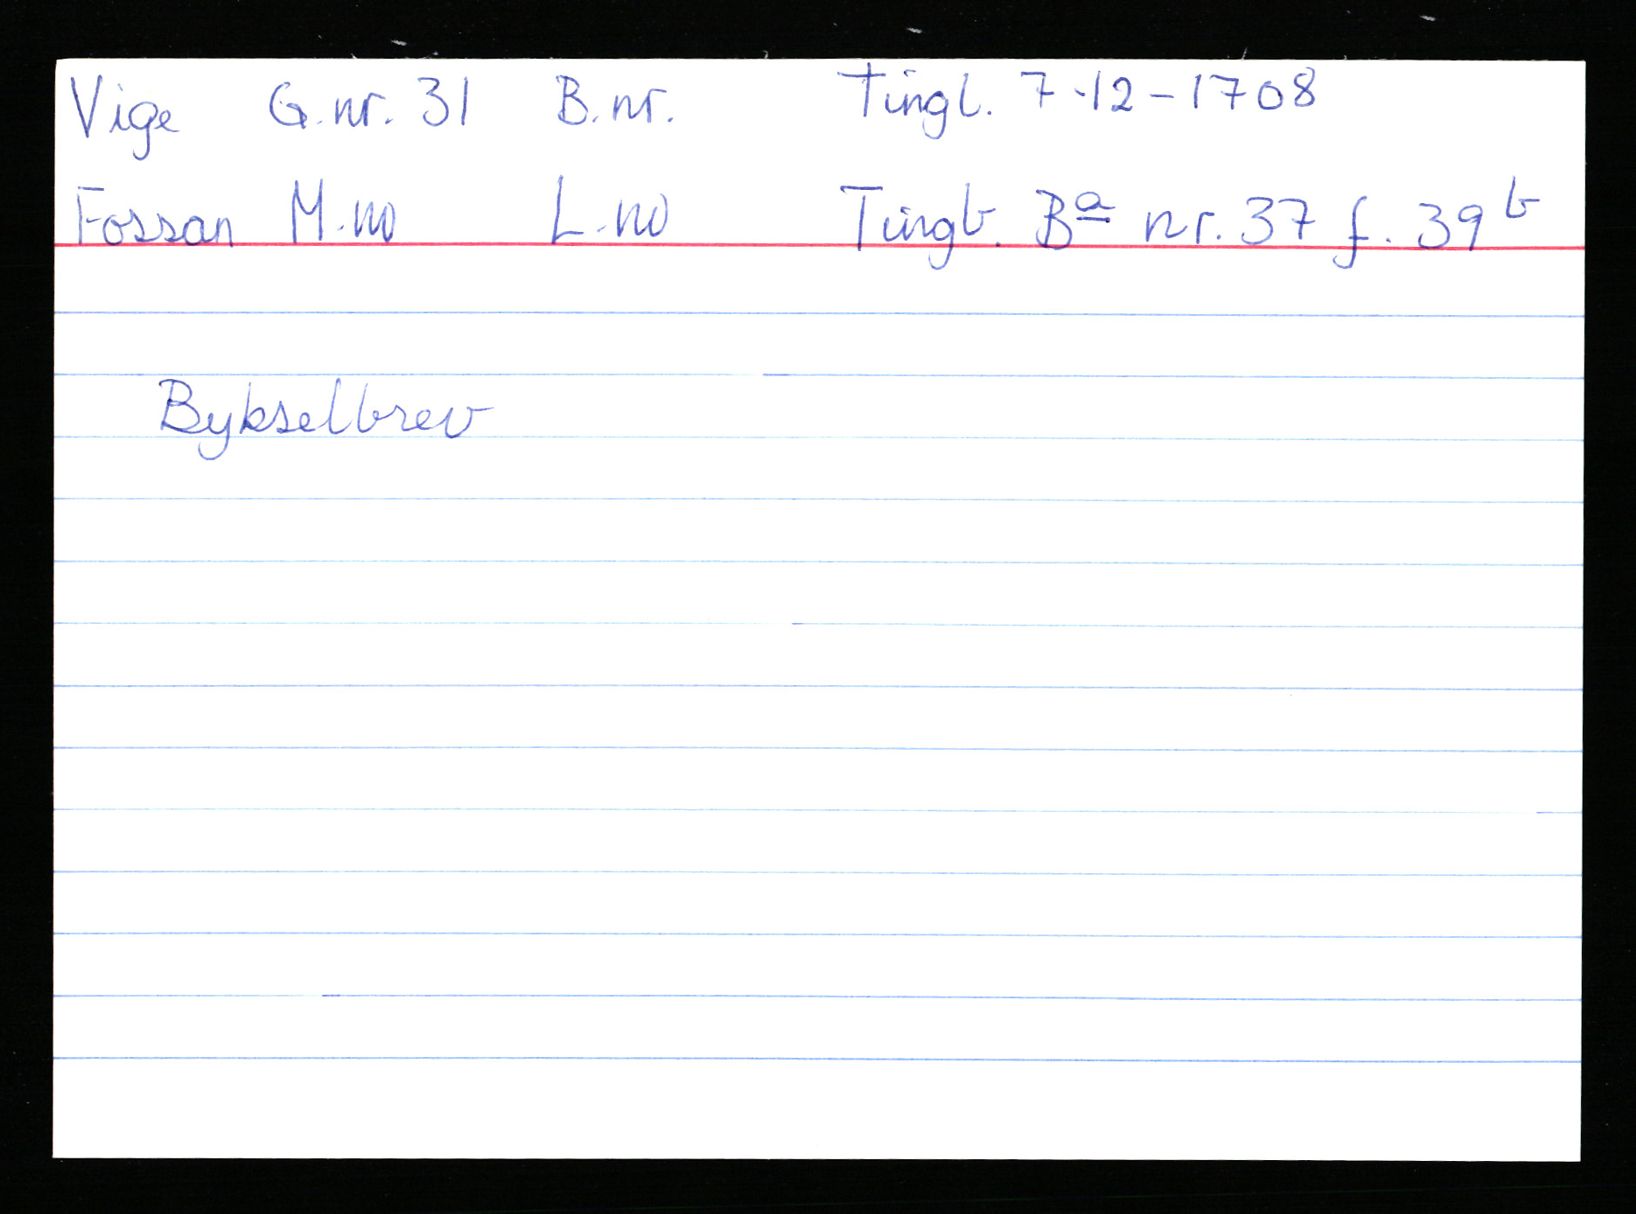 Vige G.nr. 31 B.nr. Tingl. 7-12-1708
Fossan M.no L.no Tingb. Ba nr. 37 f. 39 b
Bykselbrev